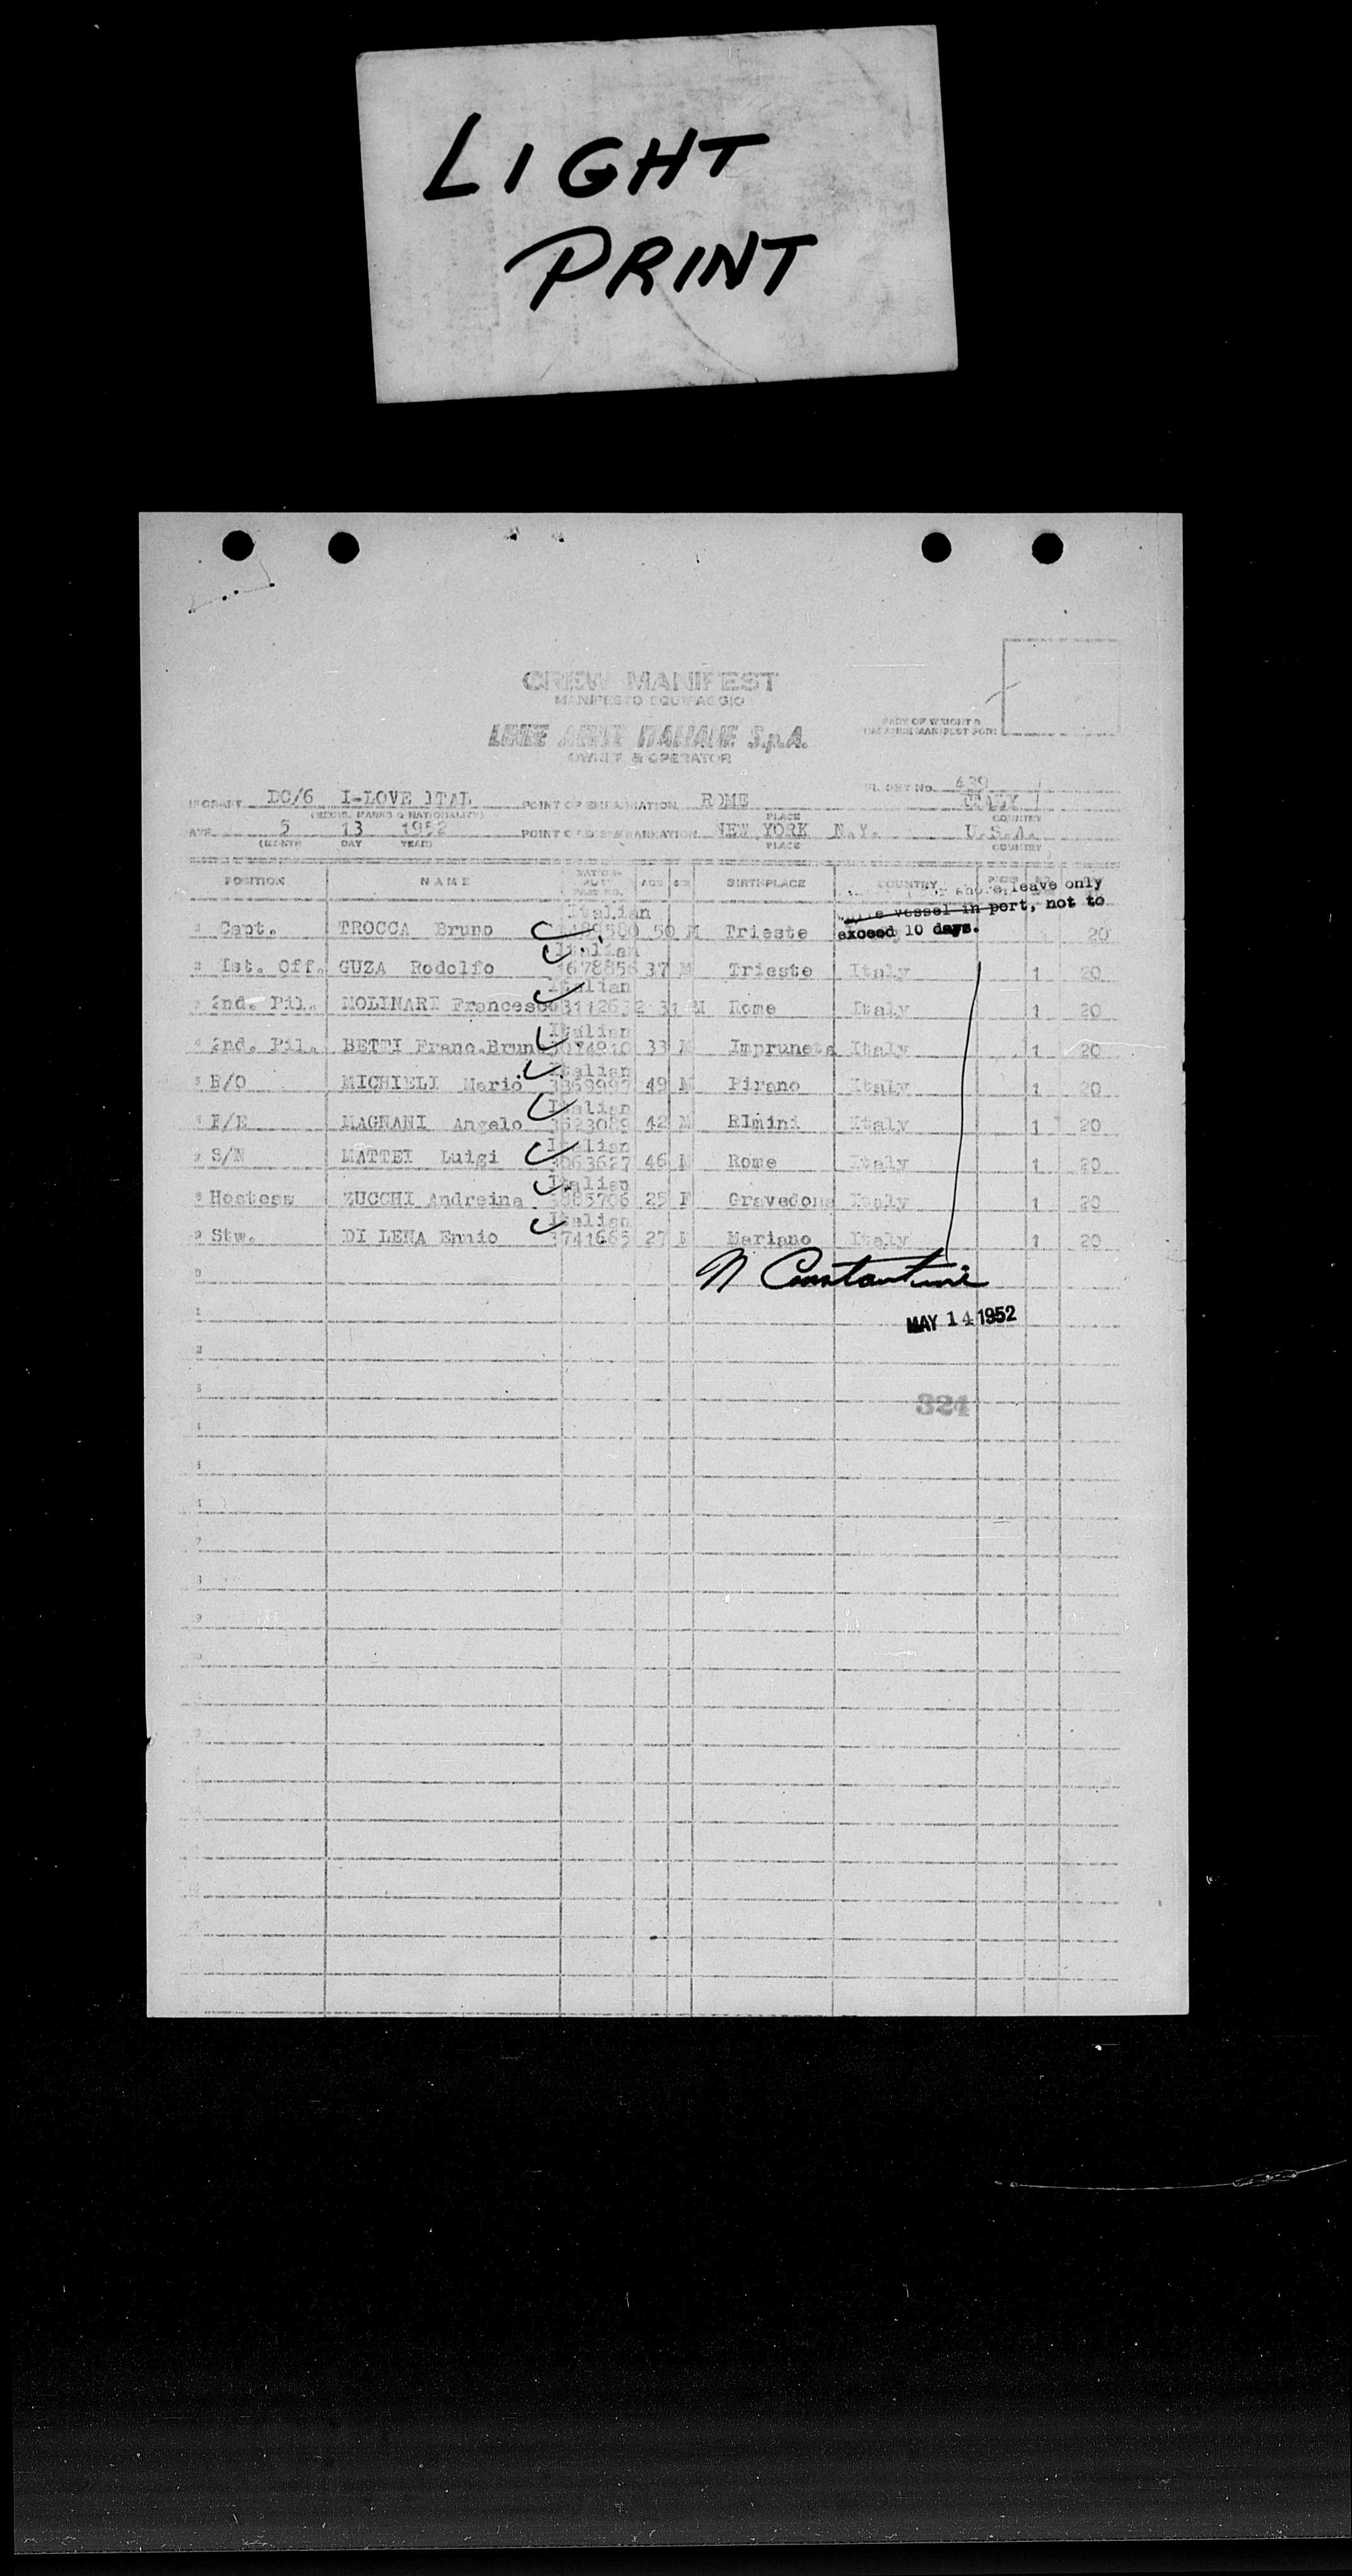 LIGHT
PRINT
CREW MANIFEST
MANIFESTO EQUIPAGGIO
LINEE AEREE ITALIANE S.p.A.
OWNER & OPERATOR
PART OF WEIGHT &
BALANCE MANIFEST FORM
FLIGHT No. 439
DC/6 I-LOVE ITAL POINT OF EMBARKATION ROME ITALY
(REGIS. MARKS & NATIONALITY) PLACE COUNTRY
5 13 1952 POINT OF DISEMBARKATION NEW YORK N.Y. U.S.A.
(MONTH DAY YEAR) PLACE COUNTRY
POSITION NAME NATION-ALITY PASS NO. AGE SEX BIRTHPLACE COUNTRY PIECES NO.
shore leave only
vessel in port, not to
exceed 10 days.
Italian
1 Capt. TROCCA Bruno 50 M Trieste 20
Italian
2 Ist. Off. GUZA Rodolfo 1678856 37 M Trieste Italy 1 20
Italian
3 2nd. Pil. MOLINARI Francesco 3112632 31 M Rome Italy 1 20
Italian
4 2nd. Pil. BETTI Franc.Bruno 33 M Impruneta Italy 1 20
Italian
5 R/O MICHIELI Mario 3369997 49 M Pirano Italy 1 20
Italian
6 F/E MAGNANI Angelo 3623089 42 M RImini Italy 1 20
Italian
7 S/N MATTEI Luigi 3063627 46 M Rome Italy 1 20
Italian
8 Hostess ZUCCHI Andreina 3885706 25 F Gravedona Italy 1 20
Italian
9 Stw. DI LENA Ennio 3741665 27 M Mariano Italy 1 20
N Constantine
MAY 14 1952
324